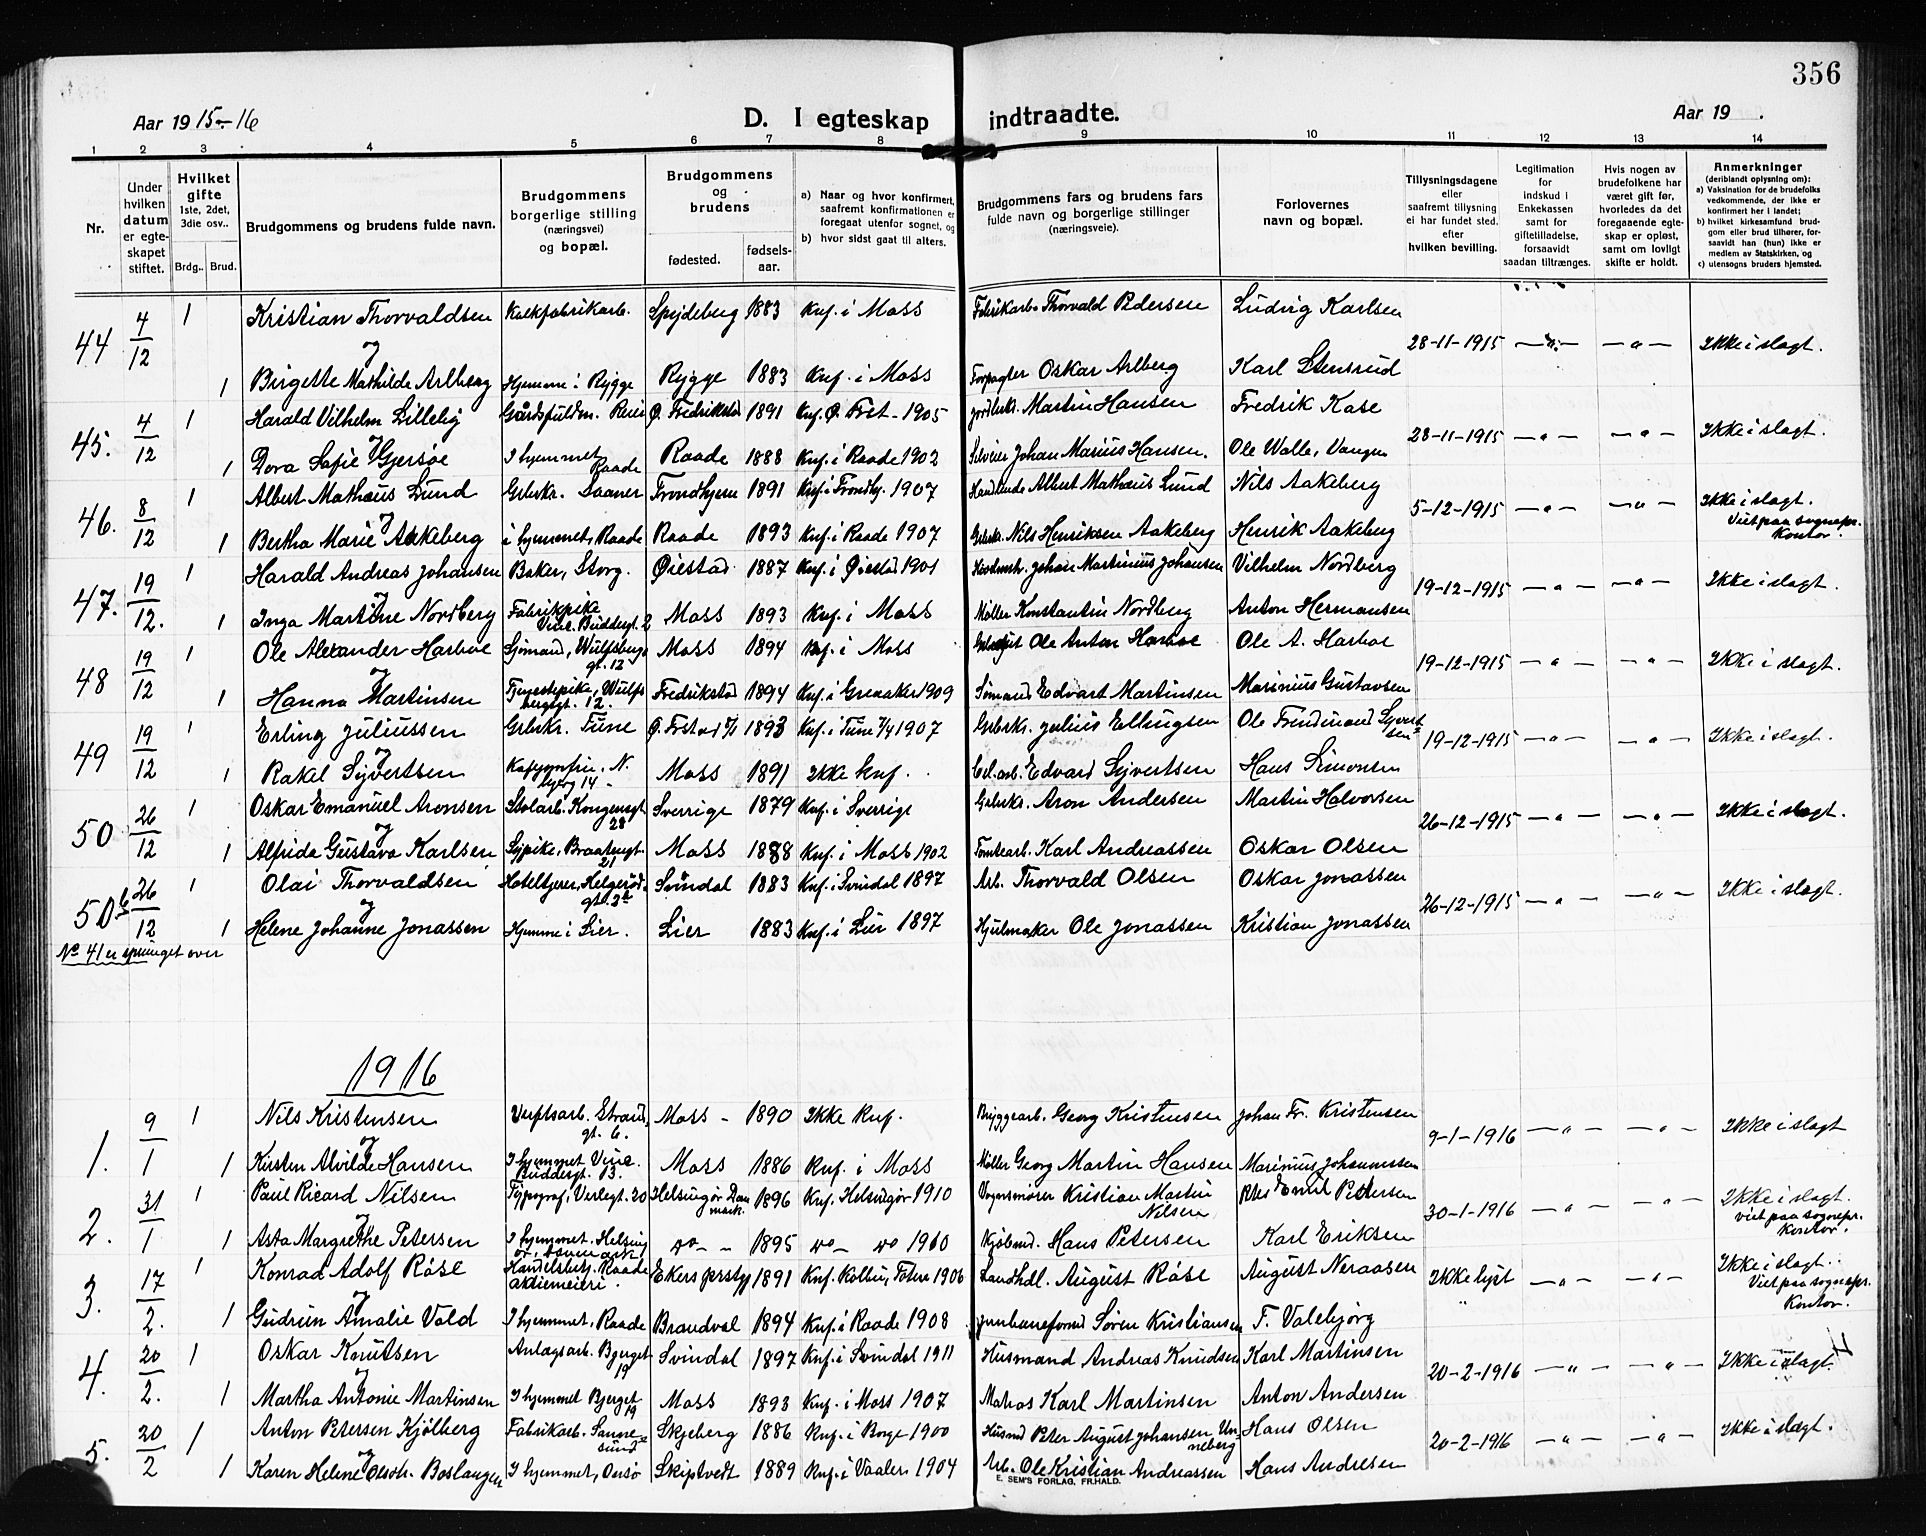 356
Aar 1915-16 D. I egteskap indtraadte. Aar 19 .
1 2 3 4 5 6 7 8 9 10 11 12 13 14
Nr.
Under hvilken datum er egte-skapet stiftet.
Hvilket gifte 1ste, 2det, 3die osv..
Brdg.. Brud.
Brudgommens og brudens fulde navn.
Brudgommens borgerlige stilling (næringsvei) og bopæl.
Brudgommens og brudens
fødested. fødsels-aar.
a) Naar og hvor konfirmert, saafremt konfirmationen er foregaat utenfor sognet, og
b) hvor sidst gaat til alters.
Brudgommens fars og brudens fars fulde navn og borgerlige stillinger (næringsveie).
Forlovernes navn og bopæl.
Tillysningsdagene eller saafremt tillysning ei har fundet sted. efter hvilken bevilling.
Legitimation for indskud i Enkekassen samt for giftetilladelse, forsaavidt saadan tiltrænges.
Hvis nogen av brudefolkene har været gift før, hvorledes da det foregaaende egte-skap er opløst, samt om lovligt skifte er holdt.
Anmerkninger (deriblandt oplysning om):
a) Vaksination for de brudefolks vedkommende, der ikke er konfirmert her i landet;
b) hvilket kirkesamfund brud-gom eller brud tilhører, for-saavidt han (hun) ikke er medlem av Statskirken, og
c) utensogns bruders hjemsted.
44 4/12 1 Kristian Thorvaldsen Kalkfabrikarb. Spydeberg 1883 Knf. i Moss Fabrikarb. Thorvald Pedersen Ludvig Karlsen
og 28-11-1915 — " — — " — Ikke i slagt.
1 Birgitte Mathilde Arlberg Hjemme i Rygge Rygge 1883 Knf. i Moss Forpagter Oskar Arlberg Karl Stensrud
45. 4/12 1 Harald Vilhelm Lilleby Gårdsfuldm. Ø. Fredrikstad 1891 Knf. Ø. Frst. 1905 Jordbrkr. Martin Hansen Fredrik Kase
og 28-11-1915 — " — — " — Ikke i slagt.
1 Dora Sofie Gjersøe I hjemmet Raade Raade 1888 Knf. i Raade 1902 Johan Marius Hansen. Ole Walle, Vangen
46. 8/12 1 Albert Mathæus Lund Grbrkr. Saaner Trondhjem 1891 Knf. i Trondhj. 1907 Handlende Albert Mathæus Lund Nils Aakeberg
og 5-12-1915 — " — — " — Ikke i slagt. Viet paa sognepr. Kontor.
1 Bertha Marie Aakeberg i hjemmet, Raade Raade 1893 Knf. i Raade 1907 Grbrkr. Nils Henriksen Aakeberg Henrik Aakeberg
47. 19/12. 1 Harald Andreas Johansen Baker, Storg. Øiestad 1887 Knf. i Øiestad 1901 Johan Martinius Johansen Vilhelm Nordberg
og 19-12-1915 — " — — " — Ikke i slagt.
1 Inga Martine Nordberg Fabrikpike Vinc. Buddesgt. 2 Moss 1893 Knf. i Moss Møller Konstantin Nordberg Anton Hermansen
48 19/12 1 Ole Alexander Harboe Sjømand, Wulfsbergs gt. 12 Moss 1894 Knf. i Moss Ole Anton Harboe Ole A. Harboe
og 19-12-1915 — " — — " — Ikke i slagt.
1 Hanna Martinsen Tjenestepike, Wulfsbergsgt. 12. Fredrikstad 1894 Knf. i Greaaker 1909 Sømand Edvart Martinsen Marinius Gustavsen
49 19/12 1 Erling Juliussen Grbrkr. Tune Ø. Frstad 1893 Knf. i Tune 7/4 1907 Grbrkr. Julius Ellingsen Ole Ferdinand Syvertsen
og 19-12-1915 — " — — " — Ikke i slagt.
1 Rakel Syvertsen N. bybg 14 Moss 1891 Ikke knf. Cel.arb. Edvard Syvertsen Hans Simonsen
50 26/12 1 Oskar Emanuel Aronsen Stolarb. Kongensgt 28 Sverrige 1879 Knf. i Sverrige Grbrkr. Aron Andersen Martin Halvorsen
og 26-12-1915 — " — — " — Ikke i slagt.
1 Alfrida Gustava Karlsen Sypike, Braatengt. 21 Moss 1888 Knf. i Moss 1902 Tomtearb. Karl Andreassen Oskar Olsen
50b 26/12 1 Olai Thorvaldsen Hotelkjører, Helgerøds gt. Svindal 1883 Knf. i Svindal 1897 Arb. Thorvald Olsen Oskar Jonassen
og 26-12-1915 — " — — " — Ikke i slagt.
1 Helene Johanne Jonassen Hjemme i Lier. Lier 1883 Knf. i Lier 1897 Hjulmaker Ole Jonassen Kristian Jonassen
No 41 er sprunget over
1916
1. 9/1 1 Nils Kristensen Verftsarb. Strand gt. 6. Moss 1890 Ikke knf. Bryggearb. Georg Kristensen Johan Fr. Kristensen
og 9-1-1916 — " — — " — Ikke i slagt
1 Kirsten Alvilde Hansen I hjemmet Vinc. Buddesgt. 13. Moss 1886 Knf. i Moss Møller Georg Martin Hansen Marinius Johannessen
2. 31/1 1 Paul Ricard Nilsen Typograf, Verlegt. 20 Helsingør Danmark. 1896 Knf. Helsingør 1910 Kristian Martin Nilsen Emil Petersen
og 30-1-1916 — " — — " — Ikke i slagt. viet paa sognepr. Kontor.
1 Asta Margrethe Petersen I hjemmet. Helsingør, Danmark 1895 1910 Kjøbmd. Hans Petersen Karl Eriksen
3. 17/2. 1 Konrad Adolf Røse Handelsbest. Raade aktiemeieri. Ekers prstgj 1891 Knf. Kolbu, Toten 1906 Landhdl. August Røse August Neraasen
og Ikke lyst — " — — " — Ikke i slagt. Viet paa sognepr. Kontor.
1 Gudrun Amalie Vold I hjemmet, Raade Brandval 1894 Knf. i Raade 1908 Jernbaneformd Søren Kristiansen F. Valebjørg
4. 20/2. 1 Oskar Knutsen Anlægsarb. Bjerget 19 Svindal 1897 Knf. i Svindal 1911 Husmand Andreas Knudsen Karl Martinsen
og 20-2-1916 — " — — " — Ikke i slagt.
1 Martha Antonie Martinsen I hjemmet Bjerget 19 Moss 1893 Knf. i Moss 1907 Matros Karl Martinsen Anton Andersen
5. 20/2 1 Anton Petersen Kjølberg Fabrikarb. Sannesund Skjeberg 1886 Knf. i Borge 1900 Husmd Peter August Johansen Unneberg Hans Olsen
og 20-2-1916 — " — — " — Ikke i slagt.
1 Karen Helene Olsdt. Boslangen I hjemmet, Onsø Skiptvedt 1889 Knf. i Vaaler 1904 Arb. Ole Kristian Andreassen Hans Andresen
E. SEM'S FORLAG, FR.HALD.